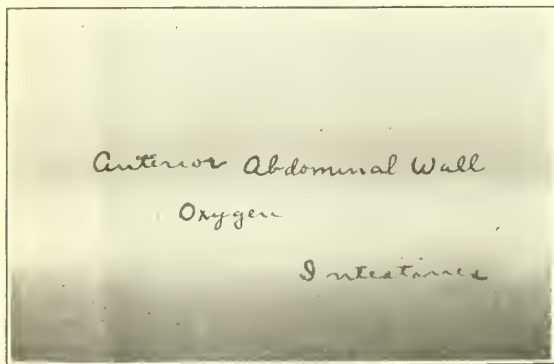 Anterior Abdominal Wall
Oxygen
Intestines